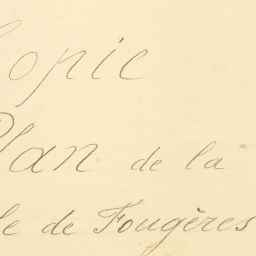 Copie
Plan de la
le de Fougères